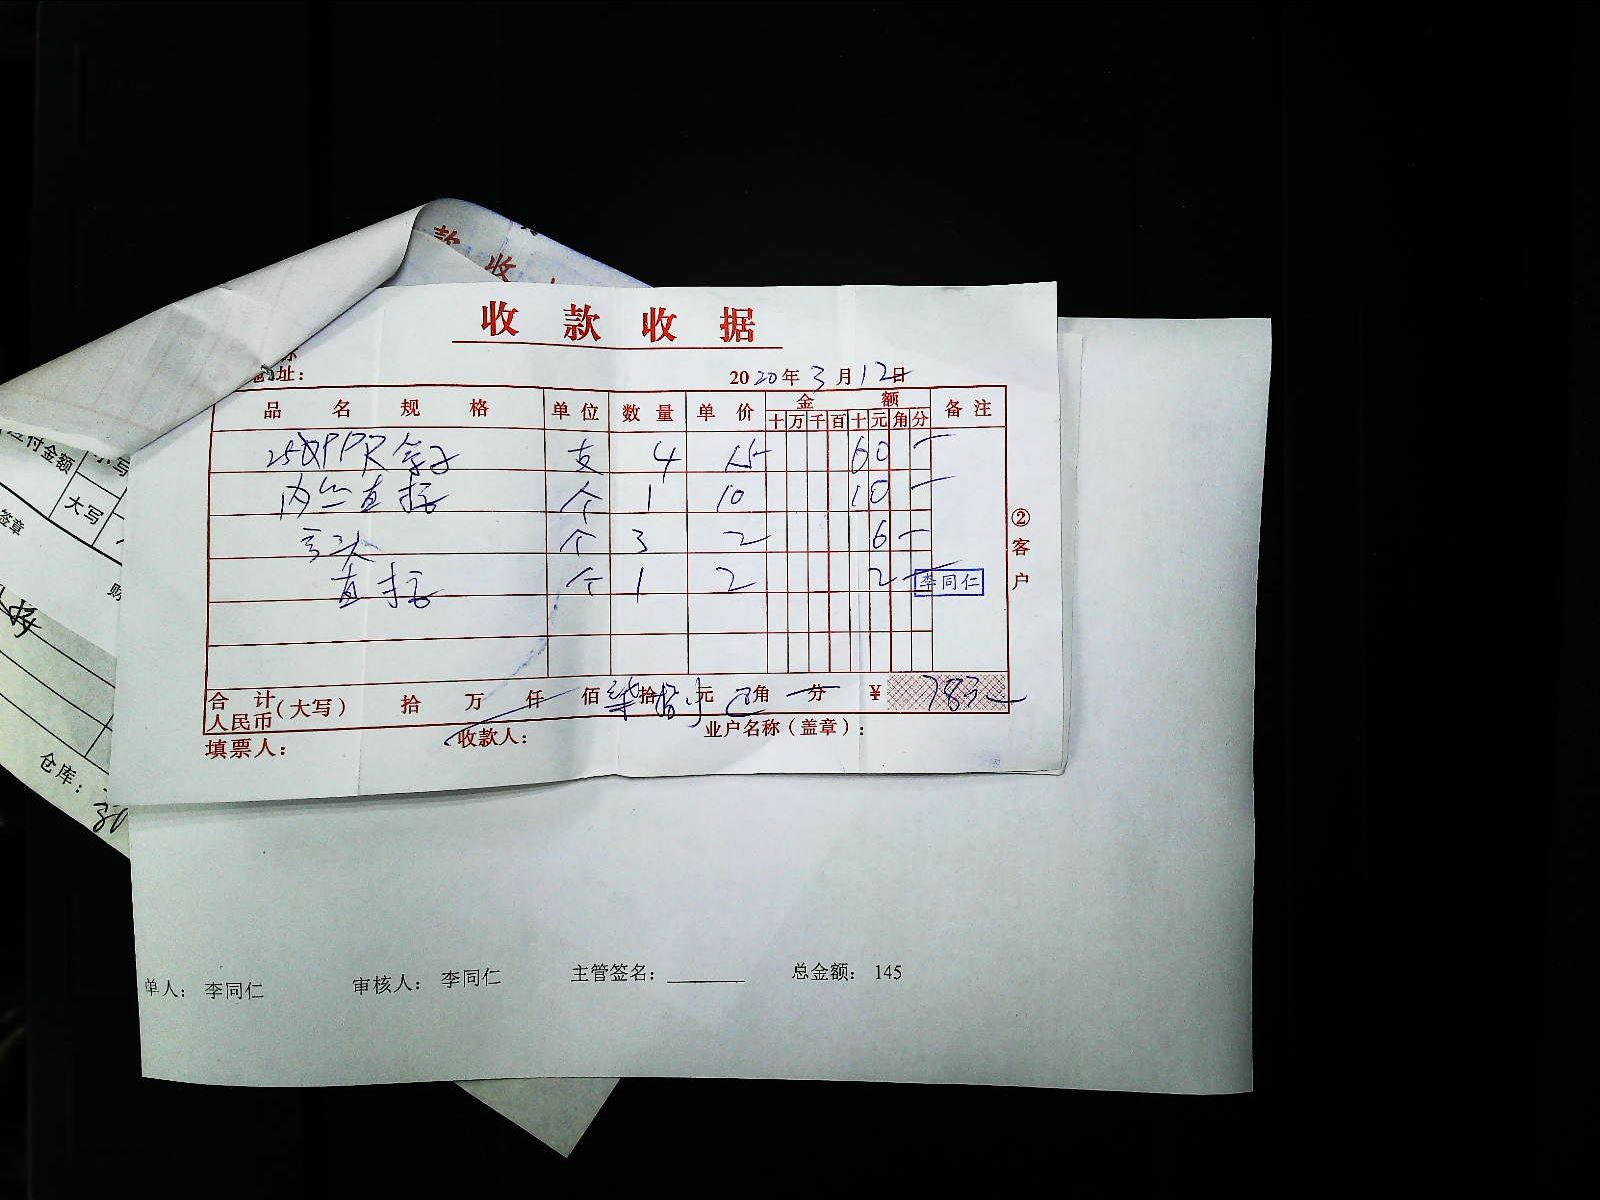 款
收
收款收据
址：
2020年3月12日
品名规格 单位 数量 单价 金额 备注
十万千百十元角分
PPR 支 4 15 60
内丝直接 个 1 10 10
弯头 个 3 2 6
直接 个 1 2 2
李同仁
②客户
合计人民币（大写） 拾 万 仟 佰 柒拾 元 角 分 ¥
填票人： 收款人： 业户名称（盖章）：
付金额
小写
大写
签章
购
仓库：
单人： 李同仁 审核人： 李同仁 主管签名： 总金额： 145